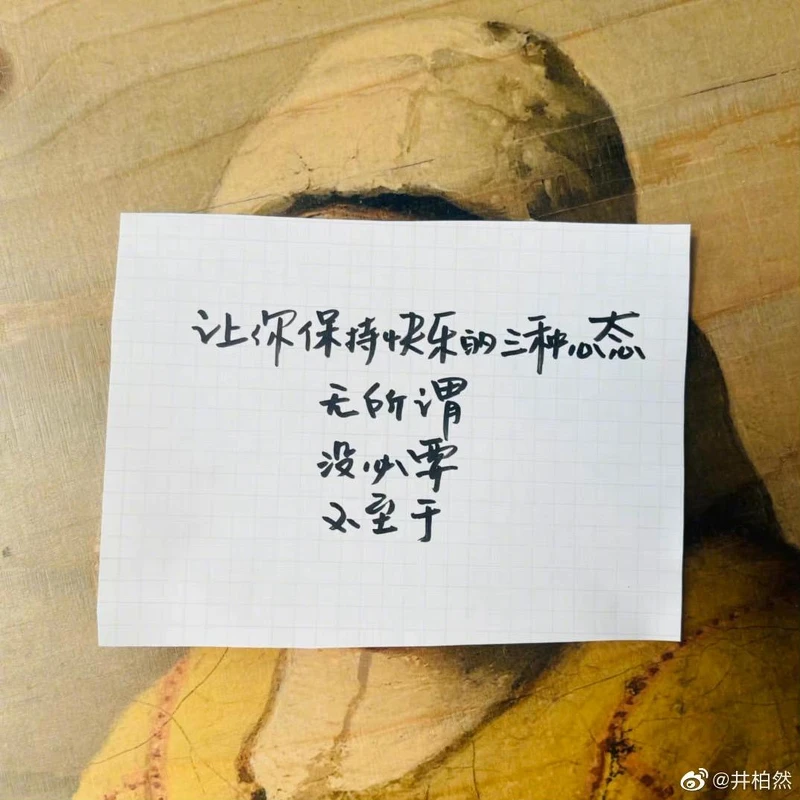 让你保持快乐的三种心态
无所谓
没必要
不至于
@井柏然